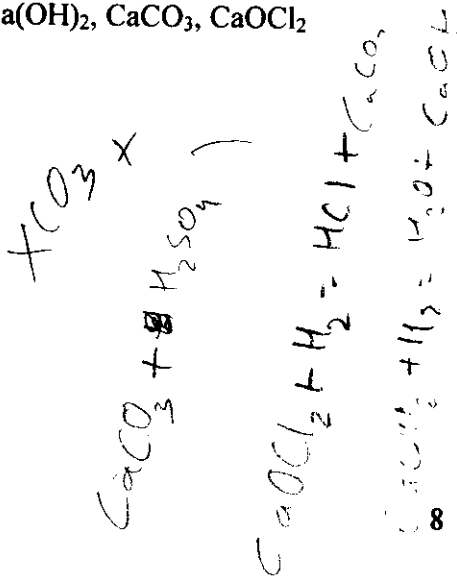 a(OH)₂, CaCO₃, CaOCl₂
+CO₃ x
CaCO₃ + H₂SO₄
CaOCl₂ + H₂ = HCl + CaCO
+ H₂ = H₂O + CaOH
8